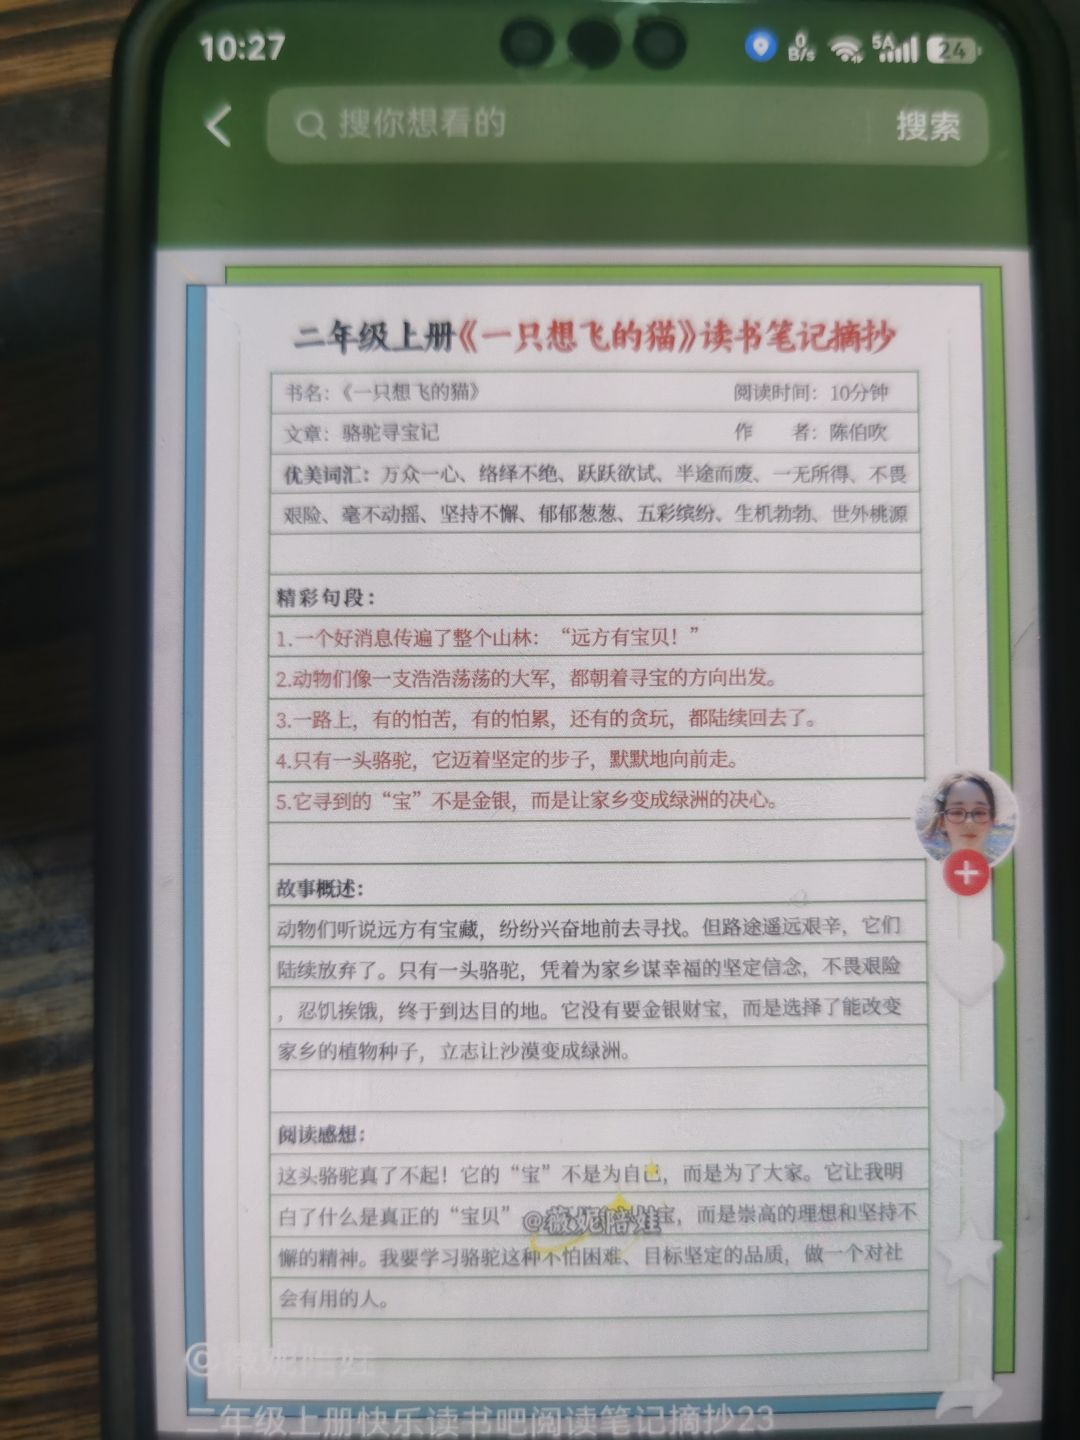 10:27
0
B/s
5A
24
搜你想看的
搜索
二年级上册《一只想飞的猫》读书笔记摘抄
书名:《一只想飞的猫》 阅读时间: 10分钟
文章: 骆驼寻宝记 作 者: 陈伯吹
优美词汇: 万众一心、络绎不绝、跃跃欲试、半途而废、一无所得、不畏
艰险、毫不动摇、坚持不懈、郁郁葱葱、五彩缤纷、生机勃勃、世外桃源
精彩句段:
1.一个好消息传遍了整个山林: “远方有宝贝!”
2.动物们像一支浩浩荡荡的大军, 都朝着寻宝的方向出发。
3.一路上, 有的怕苦, 有的怕累, 还有的贪玩, 都陆续回去了。
4.只有一头骆驼, 它迈着坚定的步子, 默默地向前走。
5.它寻到的“宝”不是金银, 而是让家乡变成绿洲的决心。
故事概述:
动物们听说远方有宝藏, 纷纷兴奋地前去寻找。但路途遥远艰辛, 它们
陆续放弃了。只有一头骆驼, 凭着为家乡谋幸福的坚定信念, 不畏艰险
, 忍饥挨饿, 终于到达目的地。它没有要金银财宝, 而是选择了能改变
家乡的植物种子, 立志让沙漠变成绿洲。
阅读感想:
这头骆驼真了不起! 它的“宝”不是为自己, 而是为了大家。它让我明
白了什么是真正的“宝贝” 宝, 而是崇高的理想和坚持不
@薇妮陪娃
懈的精神。我要学习骆驼这种不怕困难、目标坚定的品质, 做一个对社
会有用的人。
@薇妮陪娃
二年级上册快乐读书吧阅读笔记摘抄23